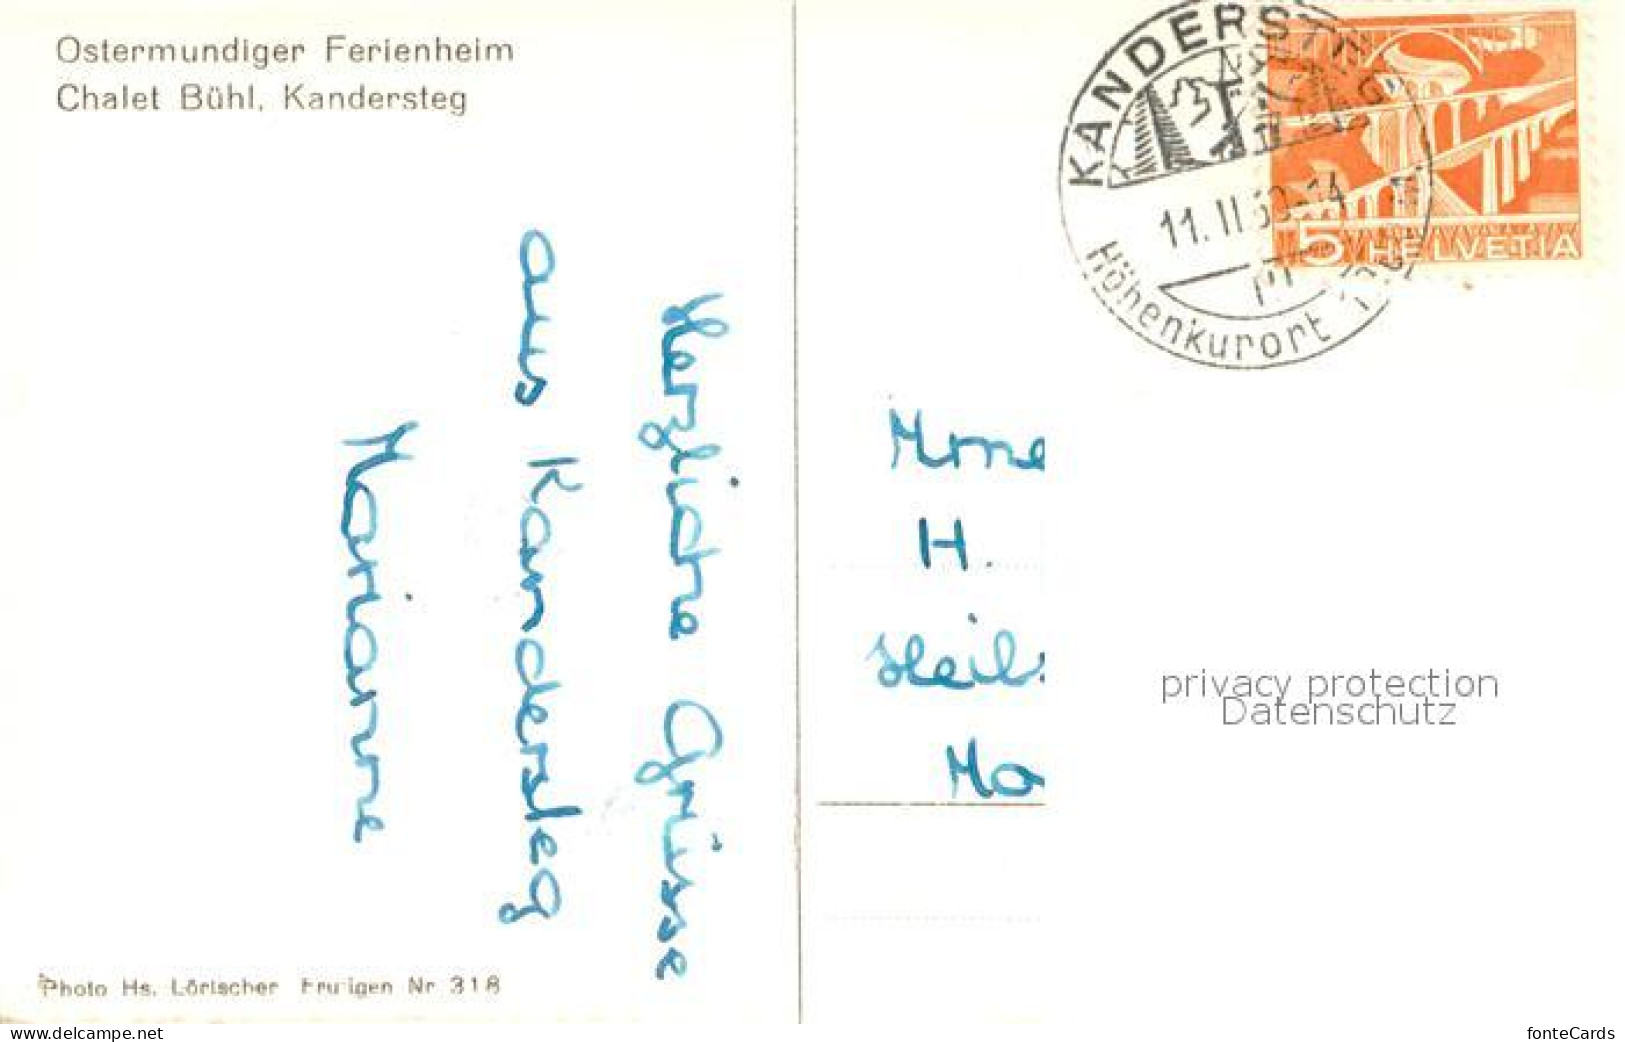 Ostermundiger Ferienheim
Chalet Bühl, Kandersteg
Herzliche Grüsse
aus Kandersteg
Marianne
Photo Hs. Lörtscher Frutigen Nr 318
KANDERSTEG
11. II
Höhenkurort
5 HELVETIA
H.
Heils
Ma
privacy protection
Datenschutz
www.delcampe.net
fonteCards